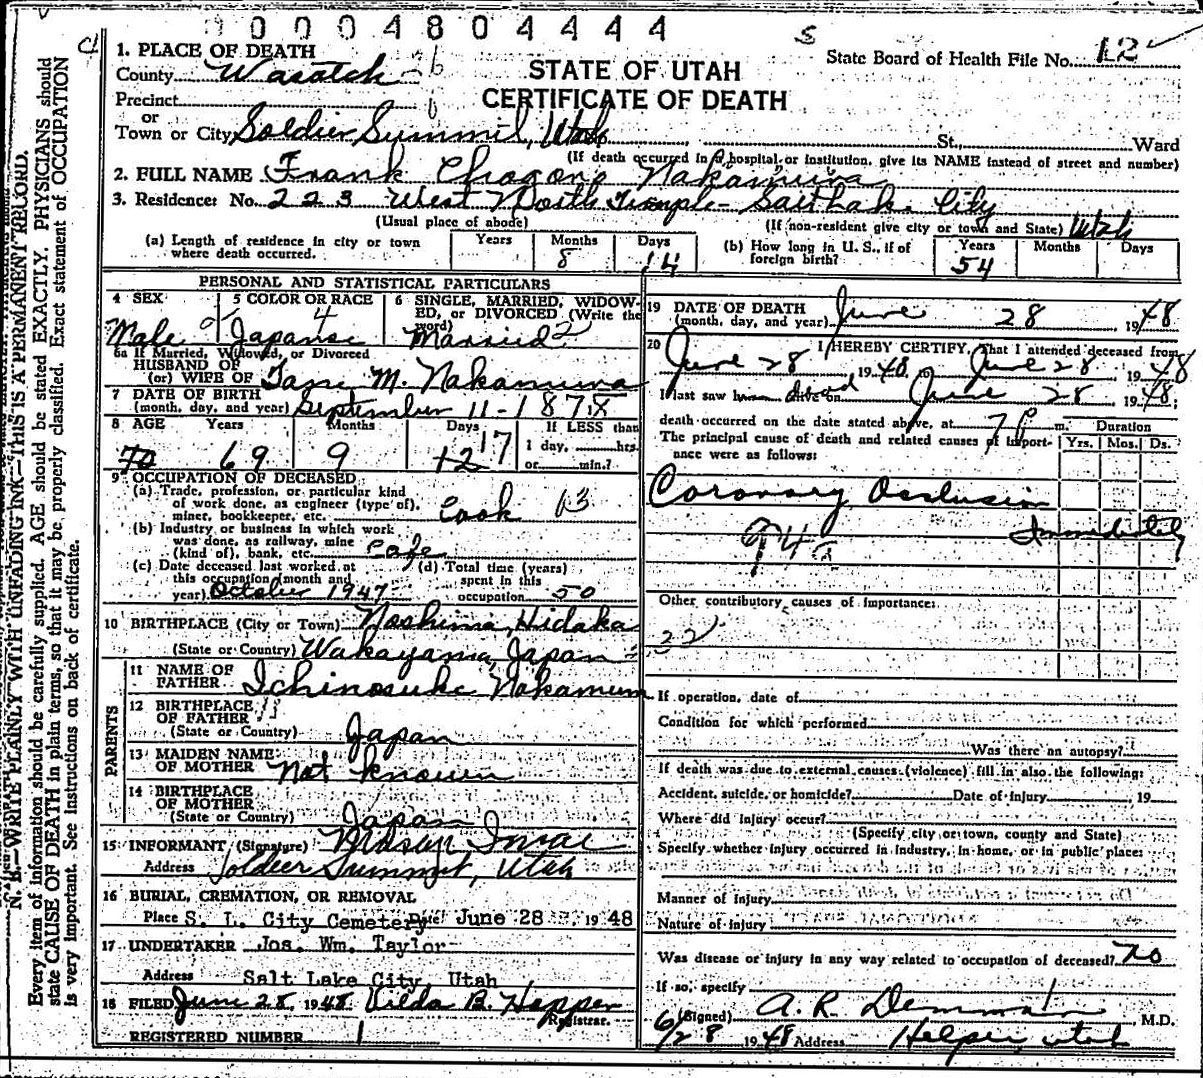 0004804444
State Board of Health File No. 12
STATE OF UTAH
CERTIFICATE OF DEATH
1. PLACE OF DEATH
County Wasatch
Precinct
or
Town or City Soldier Summit, Utah St. Ward
(If death occurred in a hospital or institution, give its NAME instead of street and number)
2. FULL NAME Frank Nakamura
3. Residence: No. 223 West North Temple - Salt Lake City
(Usual place of abode) (If non-resident give city or town and State) Utah
(a) Length of residence in city or town where death occurred. Years Months 8 Days 14
(b) How long in U. S., if of foreign birth? Years 54 Months Days
PERSONAL AND STATISTICAL PARTICULARS
4 SEX Male
5 COLOR OR RACE Japanese 4
6 SINGLE, MARRIED, WIDOWED, or DIVORCED (Write the word) Married 2
6a If Married, Widowed, or Divorced
HUSBAND OF
(or) WIFE OF M. Nakamura
7 DATE OF BIRTH
(month, day, and year) September 11-1878
8 AGE Years Months Days If LESS than
70 69 9 12 17 1 day, hrs.
or min.?
9 OCCUPATION OF DECEASED
(a) Trade, profession, or particular kind
of work done, as engineer (type of),
miner, bookkeeper, etc. Cook 13
(b) Industry or business in which work
was done, as railway, mine
(kind of), bank, etc. Cafe
(c) Date deceased last worked at
this occupation (month and
year) October 1947
(d) Total time (years)
spent in this
occupation 50
10 BIRTHPLACE (City or Town) Noshima, Hidaka
(State or Country) Wakayama, Japan
PARENTS
11 NAME OF
FATHER Ichinosuke Nakamura
12 BIRTHPLACE
OF FATHER
(State or Country) Japan
13 MAIDEN NAME
OF MOTHER Not known
14 BIRTHPLACE
OF MOTHER
(State or Country) Japan
15 INFORMANT (Signature)
Address Soldier Summit, Utah
16 BURIAL, CREMATION, OR REMOVAL
Place S. L. City Cemetery Date June 28 1948
17 UNDERTAKER Jos. Wm. Taylor
Address Salt Lake City, Utah
18 FILED June 28, 1948 Vilda B. Hepper
Registrar.
REGISTERED NUMBER 1
19 DATE OF DEATH
(month, day, and year) June 28 1948
20 I HEREBY CERTIFY, That I attended deceased from
June 28 1948, to June 28 1948
I last saw him alive on dead June 28 1948;
death occurred on the date stated above, at 7 P m. Duration
The principal cause of death and related causes of importance were as follows: Yrs. Mos. Ds.
Coronary Occlusion
Immediately
94a
Other contributory causes of importance:
22
If operation, date of
Condition for which performed
Was there an autopsy?
If death was due to external causes (violence) fill in also the following:
Accident, suicide, or homicide? Date of injury , 19
Where did injury occur?
(Specify city or town, county and State)
Specify whether injury occurred in industry, in home, or in public place:
Manner of injury
Nature of injury
Was disease or injury in any way related to occupation of deceased? no
If so, specify
(Signed) A. R. Demman M.D.
6/28 1948 Address Helper, Utah
N. B.—WRITE PLAINLY WITH UNFADING INK—THIS IS A PERMANENT RECORD.
Every item of information should be carefully supplied. AGE should be stated EXACTLY. PHYSICIANS should
state CAUSE OF DEATH in plain terms, so that it may be properly classified. Exact statement of OCCUPATION
is very important. See instructions on back of certificate.